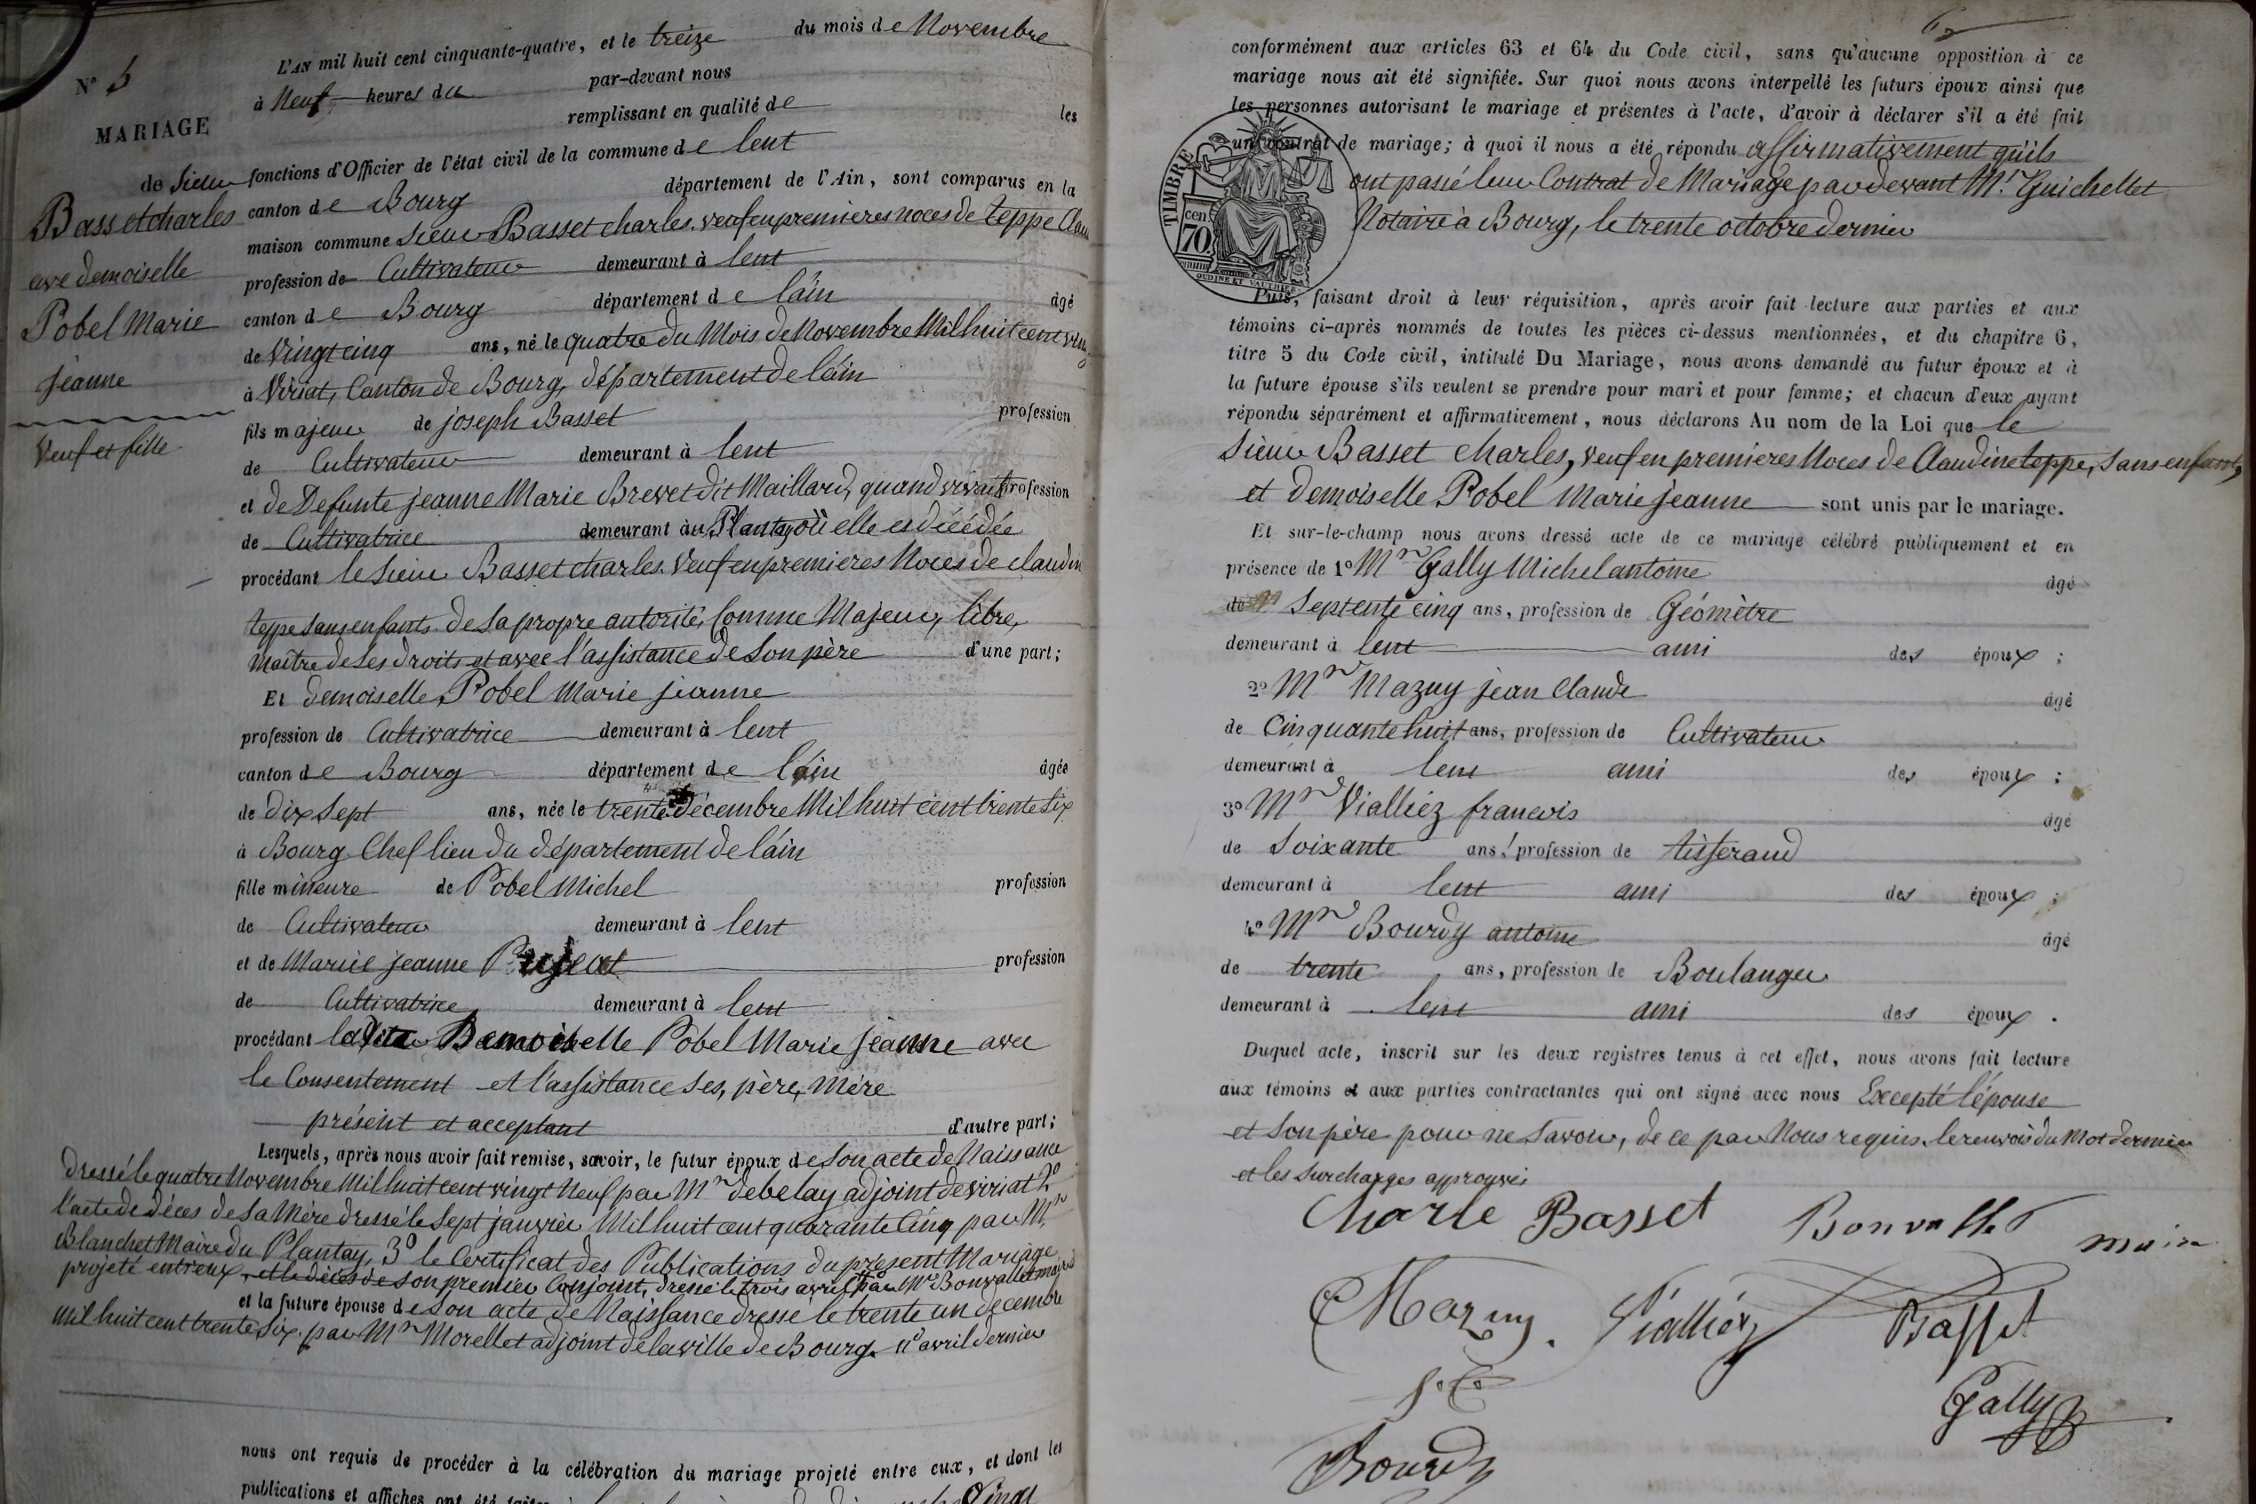 L'AN mil huit cent cinquante-quatre, et le treize du mois de Novembre
à Neuf heures du par-devant nous
remplissant en qualité de les
fonctions d'Officier de l'état civil de la commune de lent
canton de Bourg département de l'Ain, sont comparus en la
maison commune Sieur Basset charles. veuf en premieres noces de teppe Clau
profession de Cultivateur demeurant à lent
canton de Bourg département de láin âgé
de Vingt cinq ans, né le quatre du Mois de Novembre Mil huit cent vin
à Viriat, Canton de Bourg, département de láin
fils majeur de joseph Basset profession
de Cultivateur demeurant à lent
et de Defunte jeanne Marie Brevet dit Maillard, quand vivait profession
de Cultivatrice demeurant au Plantay où elle est décédée
procédant le Sieur Basset charles. Veuf en premieres Noces de claudin
teppe sans enfants. de sa propre autorité, Comme Majeur, libre,
Maître de ses droits et avec l'assistance de son père d'une part;
Et demoiselle Pobel Marie jeanne
profession de Cultivatrice demeurant à lent
canton de Bourg département de láin âgée
de dix sept ans, née le trente décembre Mil huit cent trente six
à Bourg Chef lieu du département de láin
fille mineure de Pobel Michel profession
de Cultivateur demeurant à lent
et de Marie jeanne profession
de Cultivatrice demeurant à lent
procédant ladite Demoiselle Pobel Marie jeanne avec
le Consentement et l'assistance ses, père, mère
présent et acceptant d'autre part;
Lesquels, après nous avoir fait remise, savoir, le futur époux de son acte de Naissance
dressé le quatre Novembre Mil huit cent vingt Neuf par Mr debelay adjoint de viriat 2º
l'acte de décès de sa Mère dressé le sept janvier Mil huit cent quarante Cinq par Mr
Blanchet Maire du Plantay, 3º le Certificat des Publications du présent Mariage
projeté entreux, et le décès de son premier Conjoint, dressé le trois avril par Mr Bonvallet maire
et la future épouse de son acte de Naissance dressé le trente un décembre
Mil huit cent trente six. par Mr Morellet adjoint de la ville de Bourg. avril dernier
nous ont requis de procéder à la célébration du mariage projeté entre eux, et dont les
publications et affiches ont été faites
Nº 5
MARIAGE
de Sieur
Basset charles
avec demoiselle
Pobel Marie
jeanne
Veuf et fille
conformément aux articles 63 et 64 du Code civil, sans qu'aucune opposition à ce
mariage nous ait été signifiée. Sur quoi nous avons interpellé les futurs époux ainsi que
les personnes autorisant le mariage et présentes à l'acte, d'avoir à déclarer s'il a été fait
un contrat de mariage; à quoi il nous a été répondu affirmativement qu'ils
ont passé leur Contrat de Mariage par devant Mr Guichellet
Notaire à Bourg, le trente octobre dernier
TIMBRE
cen
70
OUDINE ET VAUTHIER
Puis, faisant droit à leur réquisition, après avoir fait lecture aux parties et aux
témoins ci-après nommés de toutes les pièces ci-dessus mentionnées, et du chapitre 6,
titre 5 du Code civil, intitulé Du Mariage, nous avons demandé au futur époux et à
la future épouse s'ils veulent se prendre pour mari et pour femme; et chacun d'eux ayant
répondu séparément et affirmativement, nous déclarons Au nom de la Loi que le
Sieur Basset charles, veuf en premieres Noces de Claudine teppe, sans enfants,
et demoiselle Pobel Marie jeanne sont unis par le mariage.
Et sur-le-champ nous avons dressé acte de ce mariage célébré publiquement et en
présence de 1º Mr Gally Michel antoine âgé
de Septente cinq ans, profession de Géomètre
demeurant à lent ami des époux ;
2º Mr Mazuy jean Claude âgé
de Cinquante huit ans, profession de Cultivateur
demeurant à lent ami des époux ;
3º Mr Vialliez francois âgé
de Soixante ans, profession de tisserand
demeurant à lent ami des époux ;
4º Mr Bourdy antoine âgé
de trente ans, profession de Boulanger
demeurant à lent ami des époux .
Duquel acte, inscrit sur les deux registres tenus à cet effet, nous avons fait lecture
aux témoins et aux parties contractantes qui ont signé avec nous Excepté l'épouse
et son père pour ne savoir, de ce par Nous requis. le renvoi du Mot dernier
et les surcharges approuvés
Charle Basset Bonvallet maire
Mazuy. Vialliéz Basset
Gally
Bourdy